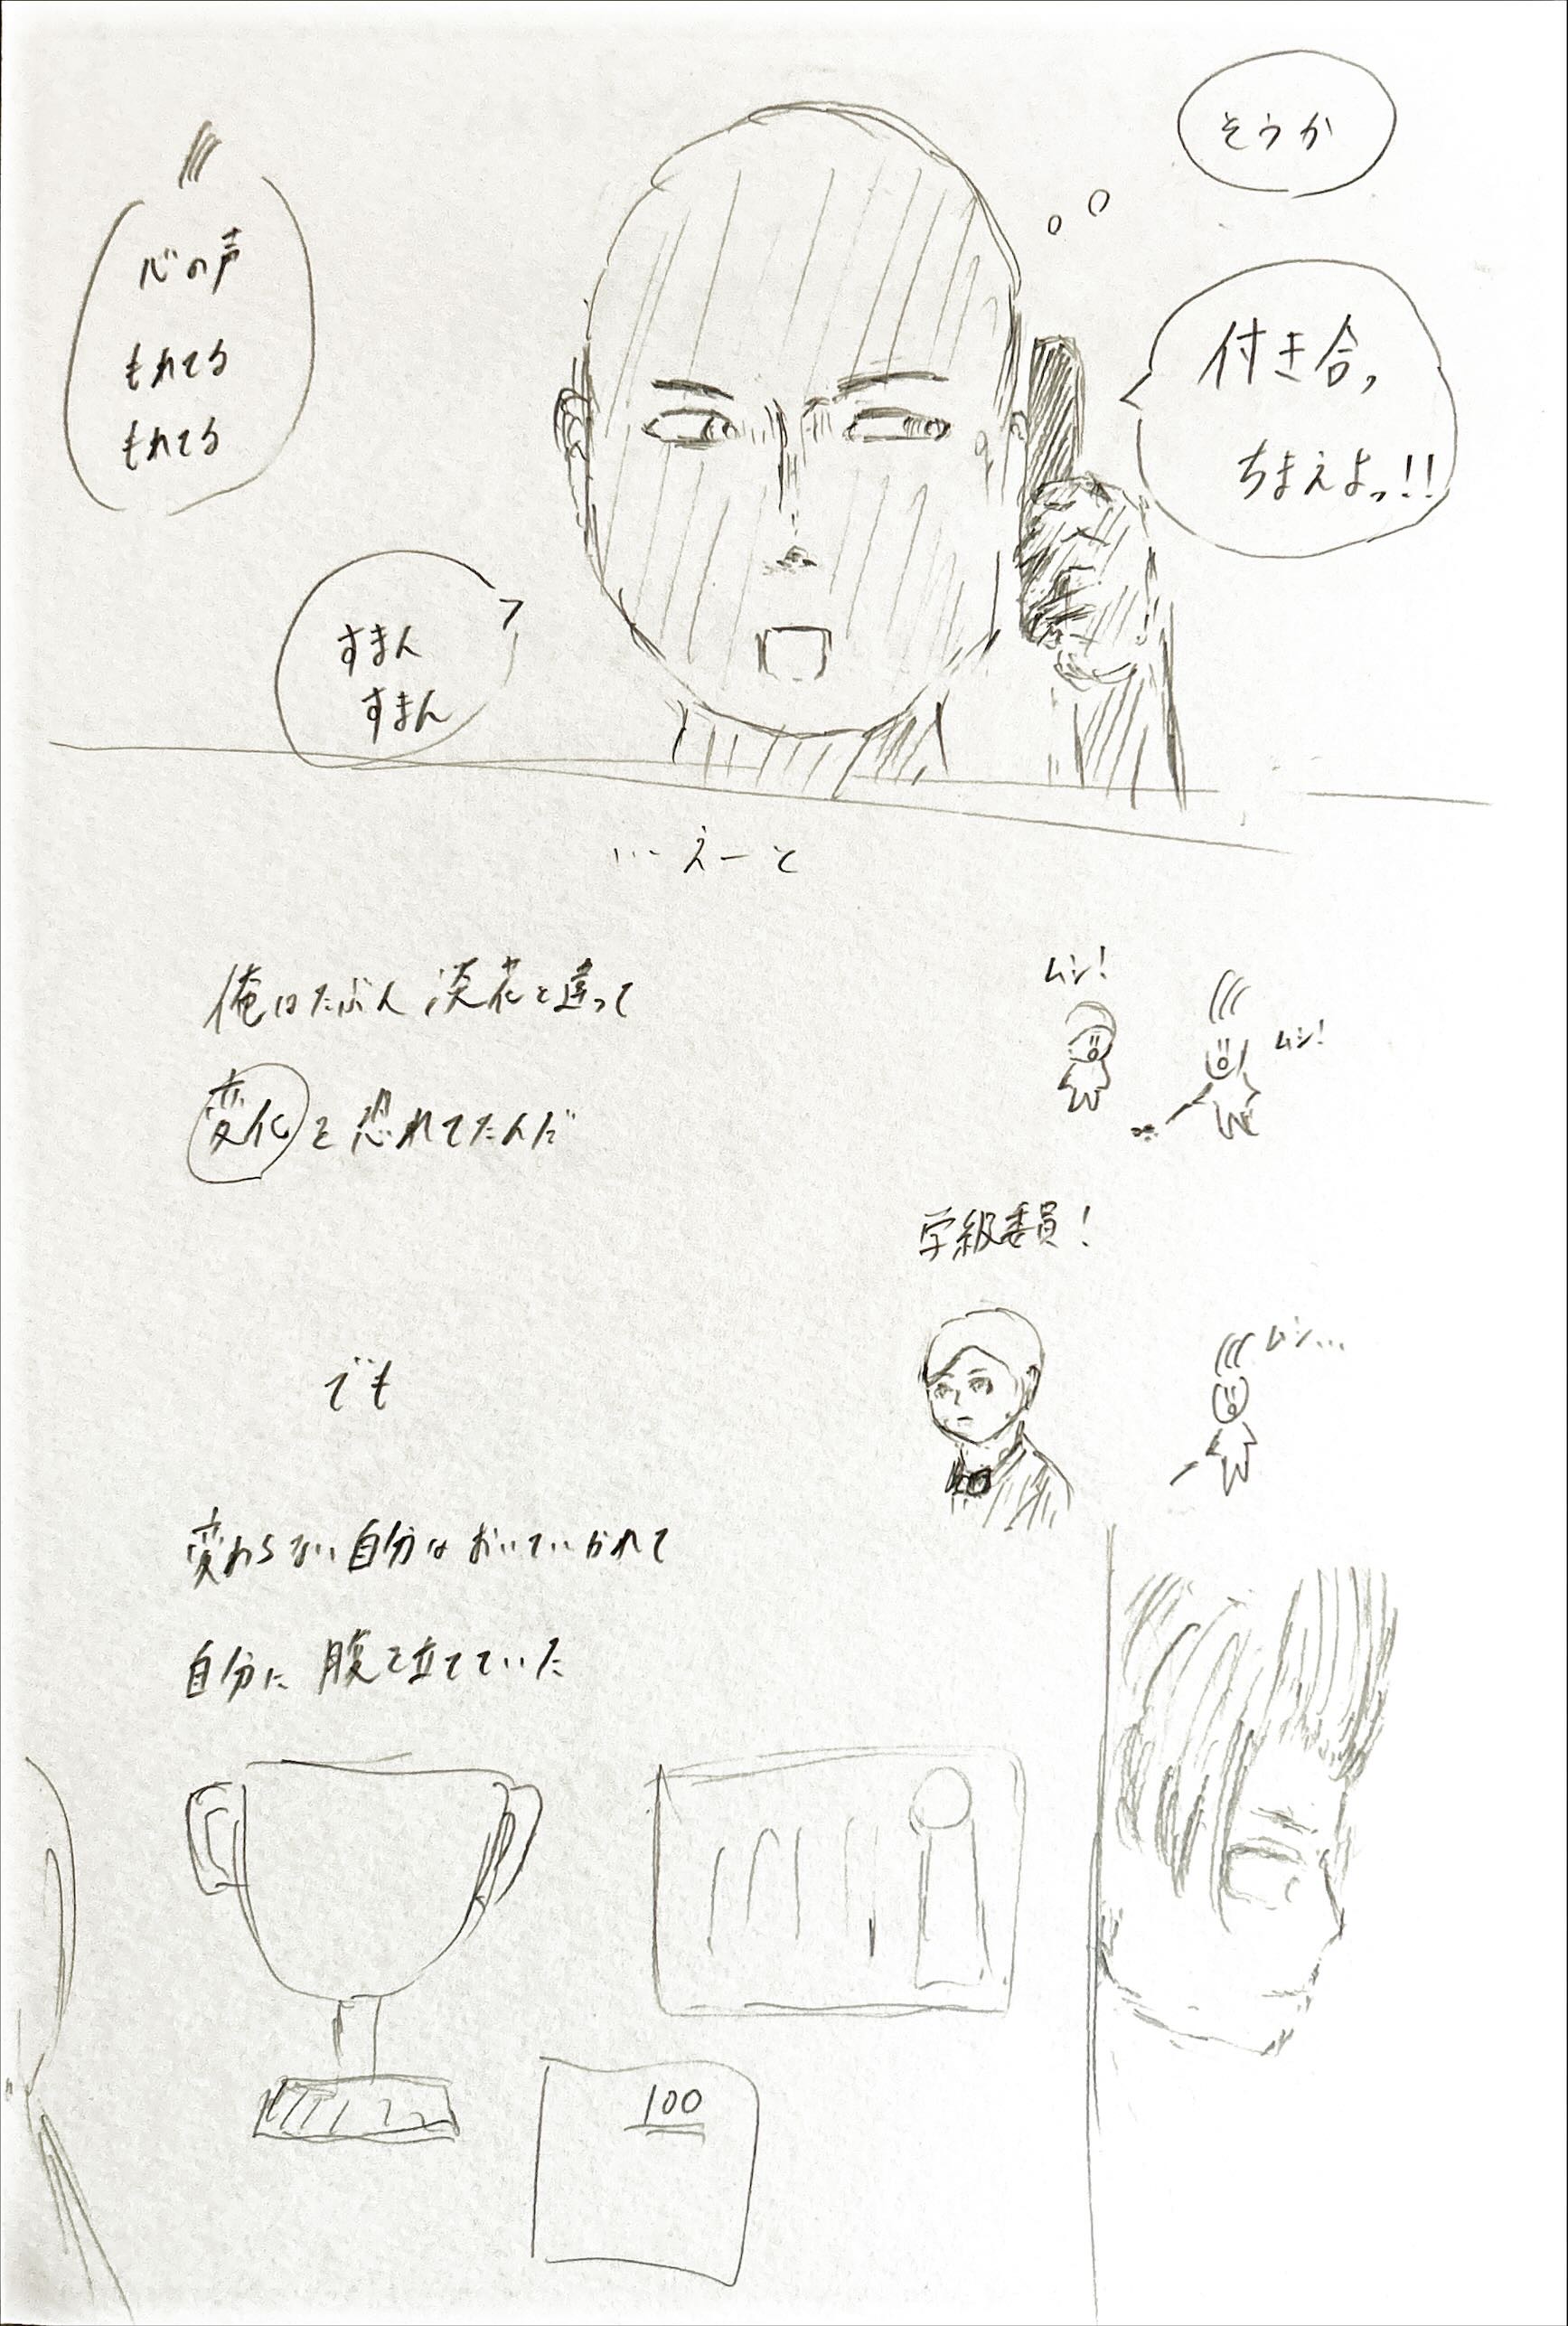 そうか
付き合っ
ちまえよっ!!
心の声
もれてる
もれてる
すまん
すまん
…えーと
ムシ!
ムシ!
俺はたぶん淡花と違って
変化を恐れてたんだ
学級委員!
ムシ…
でも
変わらない自分はおいていかれて
自分に腹を立てていた
100